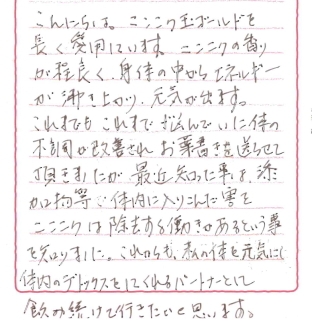 こんにちは。にんにく玉ゴールドを
長く愛用しています。にんにくの香り
が程良く、身体の中からエネルギー
が沸き上がり、元気が出ます。
これまでも これまで悩んでいた体の
不調が改善され お葉書きを送らせて
頂きましたが 最近知った事は、添
加物等 体内に入りこんだ害を
にんにくは除去する働きがあるという事
を知りました。これからも、私の体を元気にし
体内のデトックスをしてくれるパートナーとして
飲み続けて行きたいと思います。